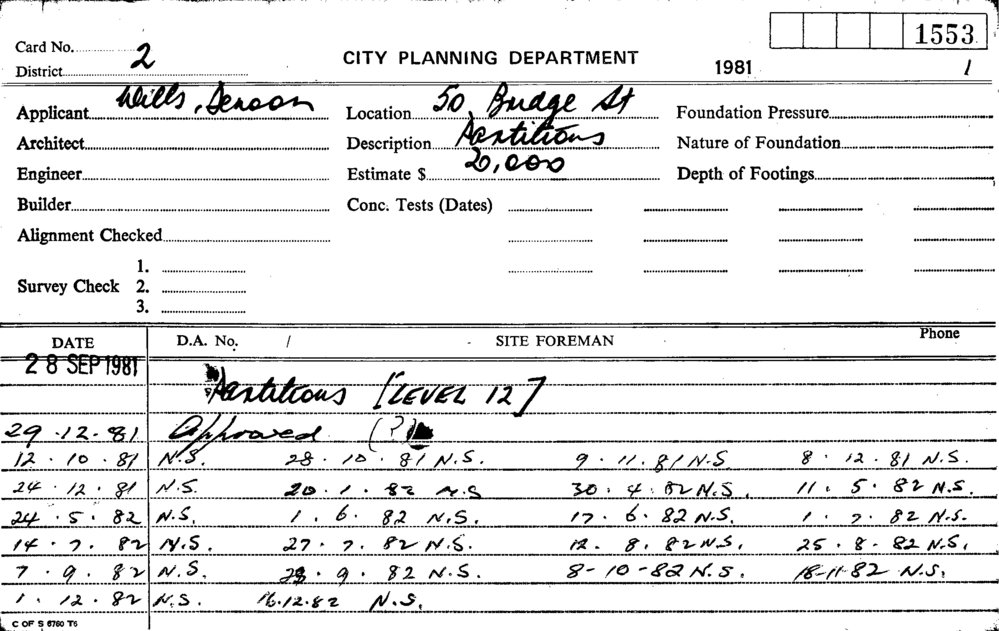 1553
Card No. 2
CITY PLANNING DEPARTMENT
District
1981 1
Applicant Wills, Denoon Location 50 Bridge St Foundation Pressure
Architect Description Partitions Nature of Foundation
Engineer Estimate $ 20,000 Depth of Footings
Builder Conc. Tests (Dates)
Alignment Checked
1.
Survey Check 2.
3.
DATE D.A. No. / SITE FOREMAN Phone
28 SEP 1981
Partitions [LEVEL 12]
29.12.81 Approved (?)
12.10.81 N.S. 28.10.81 N.S. 9.11.81 N.S. 8.12.81 N.S.
24.12.81 N.S. 20.1.82 N.S 30.4.82 N.S. 11.5.82 N.S.
24.5.82 N.S. 1.6.82 N.S. 17.6.82 N.S. 1.7.82 N.S.
14.7.82 N.S. 27.7.82 N.S. 12.8.82 N.S. 25.8.82 N.S.
7.9.82 N.S. 9.82 N.S. 8-10-82 N.S. 18-11-82 N.S.
1.12.82 N.S. 16.12.82 N.S.
C OF S 6760 T6